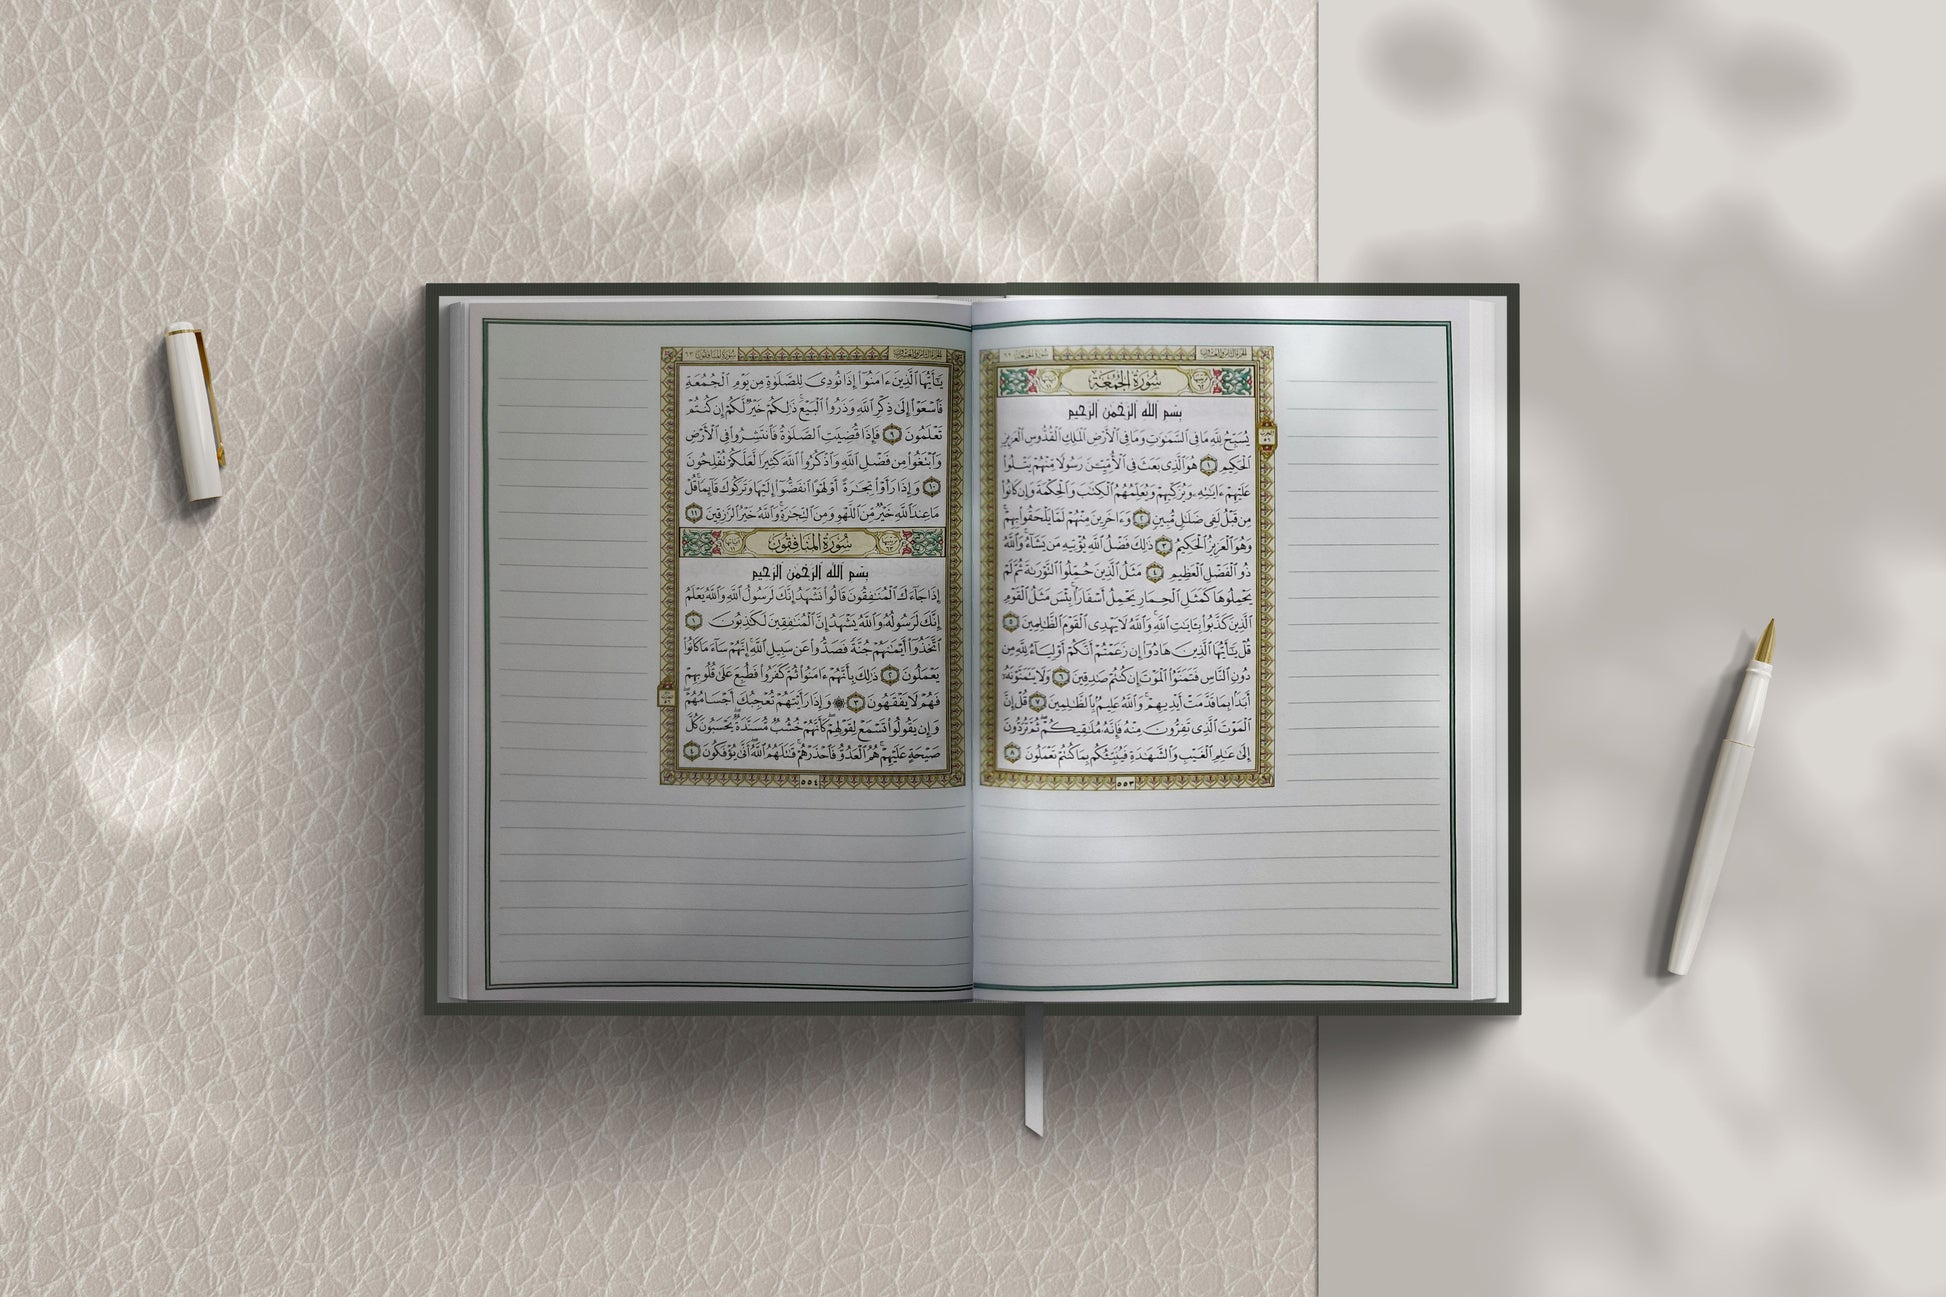 الجزء الثامن والعشرون
سورة الجمعة ٦٢
سُورَةُ الجُمُعَةِ
بسم الله الرحمن الرحيم
يُسَبِّحُ لِلَّهِ مَا فِي ٱلسَّمَٰوَٰتِ وَمَا فِي ٱلْأَرْضِ ٱلْمَلِكِ ٱلْقُدُّوسِ ٱلْعَزِيزِ
ٱلْحَكِيمِ ١ هُوَ ٱلَّذِي بَعَثَ فِي ٱلْأُمِّيِّـۧنَ رَسُولًا مِّنْهُمْ يَتْلُوا۟
عَلَيْهِمْ ءَايَٰتِهِۦ وَيُزَكِّيهِمْ وَيُعَلِّمُهُمُ ٱلْكِتَٰبَ وَٱلْحِكْمَةَ وَإِن كَانُوا۟
مِن قَبْلُ لَفِي ضَلَٰلٍ مُّبِينٍ ٢ وَءَاخَرِينَ مِنْهُمْ لَمَّا يَلْحَقُوا۟ بِهِمْ ۚ
وَهُوَ ٱلْعَزِيزُ ٱلْحَكِيمُ ٣ ذَٰلِكَ فَضْلُ ٱللَّهِ يُؤْتِيهِ مَن يَشَآءُ ۚ وَٱللَّهُ
ذُو ٱلْفَضْلِ ٱلْعَظِيمِ ٤ مَثَلُ ٱلَّذِينَ حُمِّلُوا۟ ٱلتَّوْرَىٰةَ ثُمَّ لَمْ
يَحْمِلُوهَا كَمَثَلِ ٱلْحِمَارِ يَحْمِلُ أَسْفَارًۢا ۚ بِئْسَ مَثَلُ ٱلْقَوْمِ
ٱلَّذِينَ كَذَّبُوا۟ بِـَٔايَٰتِ ٱللَّهِ ۚ وَٱللَّهُ لَا يَهْدِي ٱلْقَوْمَ ٱلظَّٰلِمِينَ ٥
قُلْ يَٰٓأَيُّهَا ٱلَّذِينَ هَادُوٓا۟ إِن زَعَمْتُمْ أَنَّكُمْ أَوْلِيَآءُ لِلَّهِ مِن
دُونِ ٱلنَّاسِ فَتَمَنَّوُا۟ ٱلْمَوْتَ إِن كُنتُمْ صَٰدِقِينَ ٦ وَلَا يَتَمَنَّوْنَهُۥٓ
أَبَدًۢا بِمَا قَدَّمَتْ أَيْدِيهِمْ ۚ وَٱللَّهُ عَلِيمٌۢ بِٱلظَّٰلِمِينَ ٧ قُلْ إِنَّ
ٱلْمَوْتَ ٱلَّذِي تَفِرُّونَ مِنْهُ فَإِنَّهُۥ مُلَٰقِيكُمْ ۖ ثُمَّ تُرَدُّونَ
إِلَىٰ عَٰلِمِ ٱلْغَيْبِ وَٱلشَّهَٰدَةِ فَيُنَبِّئُكُم بِمَا كُنتُمْ تَعْمَلُونَ ٨
٥٥٣
الجزء الثامن والعشرون
سورة المنافقون ٦٣
يَٰٓأَيُّهَا ٱلَّذِينَ ءَامَنُوٓا۟ إِذَا نُودِيَ لِلصَّلَوٰةِ مِن يَوْمِ ٱلْجُمُعَةِ
فَٱسْعَوْا۟ إِلَىٰ ذِكْرِ ٱللَّهِ وَذَرُوا۟ ٱلْبَيْعَ ۚ ذَٰلِكُمْ خَيْرٌ لَّكُمْ إِن كُنتُمْ
تَعْلَمُونَ ٩ فَإِذَا قُضِيَتِ ٱلصَّلَوٰةُ فَٱنتَشِرُوا۟ فِي ٱلْأَرْضِ
وَٱبْتَغُوا۟ مِن فَضْلِ ٱللَّهِ وَٱذْكُرُوا۟ ٱللَّهَ كَثِيرًا لَّعَلَّكُمْ تُفْلِحُونَ
١٠ وَإِذَا رَأَوْا۟ تِجَٰرَةً أَوْ لَهْوًا ٱنفَضُّوٓا۟ إِلَيْهَا وَتَرَكُوكَ قَآئِمًا ۚ قُلْ
مَا عِندَ ٱللَّهِ خَيْرٌ مِّنَ ٱللَّهْوِ وَمِنَ ٱلتِّجَٰرَةِ ۚ وَٱللَّهُ خَيْرُ ٱلرَّٰزِقِينَ ١١
سُورَةُ المُنَافِقُونَ
بسم الله الرحمن الرحيم
إِذَا جَآءَكَ ٱلْمُنَٰفِقُونَ قَالُوا۟ نَشْهَدُ إِنَّكَ لَرَسُولُ ٱللَّهِ ۗ وَٱللَّهُ يَعْلَمُ
إِنَّكَ لَرَسُولُهُۥ وَٱللَّهُ يَشْهَدُ إِنَّ ٱلْمُنَٰفِقِينَ لَكَٰذِبُونَ ١
ٱتَّخَذُوٓا۟ أَيْمَٰنَهُمْ جُنَّةً فَصَدُّوا۟ عَن سَبِيلِ ٱللَّهِ ۚ إِنَّهُمْ سَآءَ مَا كَانُوا۟
يَعْمَلُونَ ٢ ذَٰلِكَ بِأَنَّهُمْ ءَامَنُوا۟ ثُمَّ كَفَرُوا۟ فَطُبِعَ عَلَىٰ قُلُوبِهِمْ
فَهُمْ لَا يَفْقَهُونَ ٣ ۞ وَإِذَا رَأَيْتَهُمْ تُعْجِبُكَ أَجْسَامُهُمْ ۖ
وَإِن يَقُولُوا۟ تَسْمَعْ لِقَوْلِهِمْ ۖ كَأَنَّهُمْ خُشُبٌ مُّسَنَّدَةٌ ۖ يَحْسَبُونَ كُلَّ
صَيْحَةٍ عَلَيْهِمْ ۚ هُمُ ٱلْعَدُوُّ فَٱحْذَرْهُمْ ۚ قَٰتَلَهُمُ ٱللَّهُ ۖ أَنَّىٰ يُؤْفَكُونَ ٤
٥٥٤